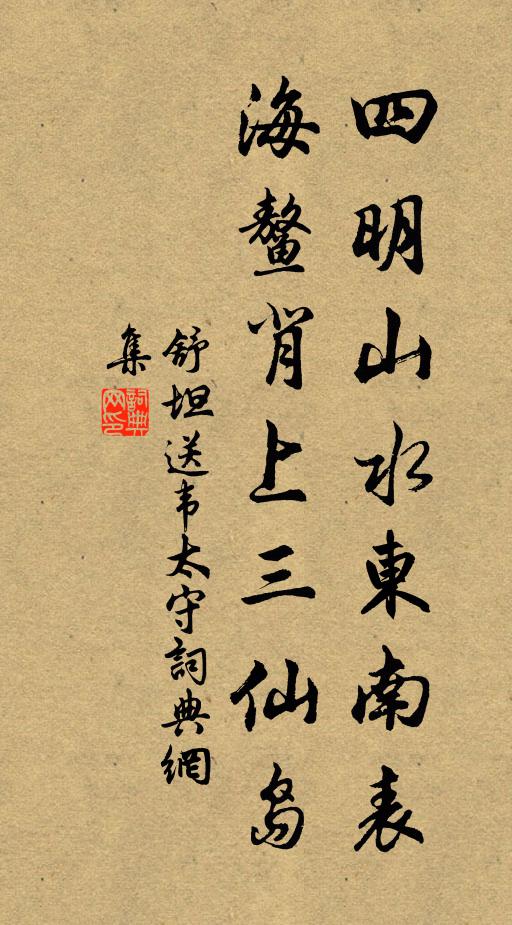 四明山水東南表
海鼇背上三仙島
舒坦送韦太守詞典網
集
詞典
网印